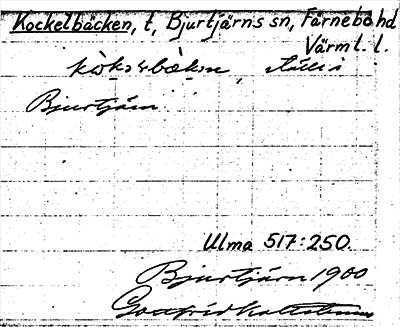 Kockelbäcken, t, Bjurtjärns sn, Färnebo hd
Värml. l.
ställe i
Bjurtjärn
Ulma 517:250.
Bjurtjärn 1900
Gottfrid Kallstenius